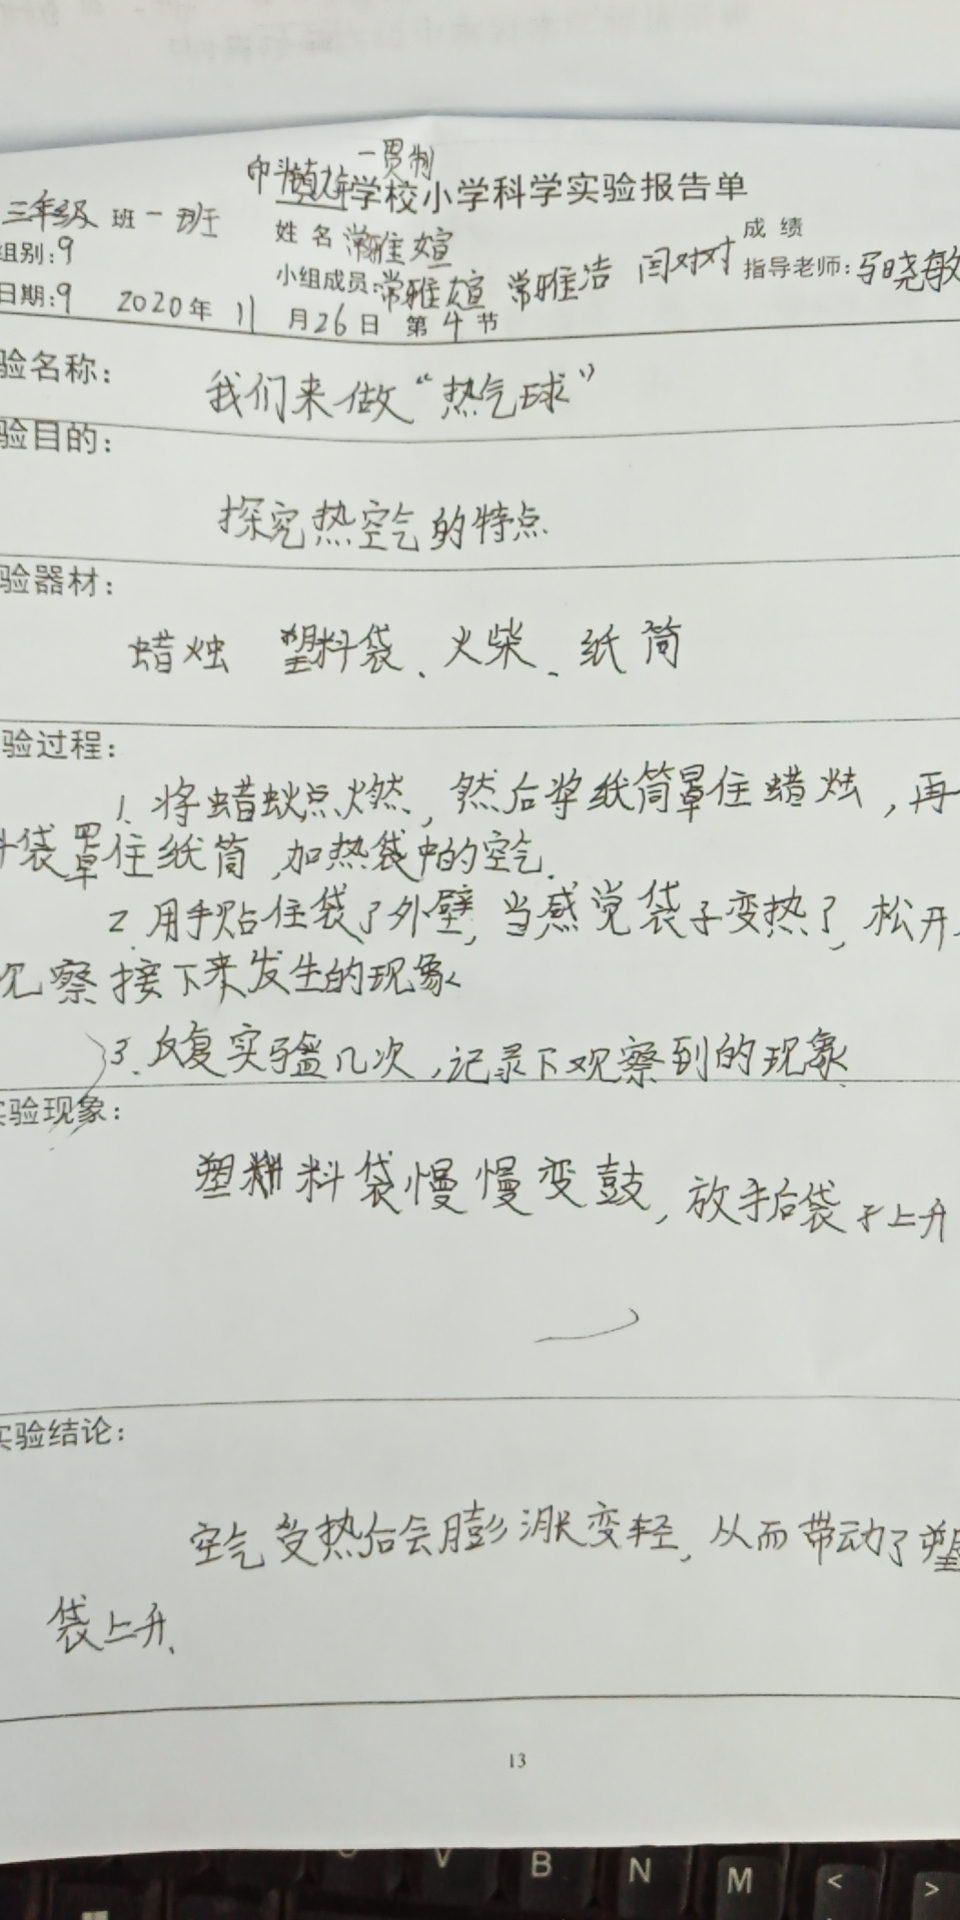 一贯制
中头镇九年学校小学科学实验报告单
三年级 班 一 班
姓 名 常雅媗
成 绩
组别:9
小组成员:常雅媗 常雅洁 闫对对
指导老师:马晓敏
日期:9 2020年 11 月26日 第 4 节
验名称:
我们来做“热气球”
验目的:
探究热空气的特点.
验器材:
蜡烛 塑料袋、火柴、纸筒
验过程:
1.将蜡烛点燃,然后将纸筒罩住蜡烛,再
袋罩住纸筒,加热袋中的空气.
2.用手贴住袋子外壁,当感觉袋子变热了,松开
观察接下来发生的现象
3.反复实验几次,记录下观察到的现象.
实验现象:
塑料袋慢慢变鼓,放手后袋子上升
实验结论:
空气受热后会膨涨变轻,从而带动了塑
袋上升.
13
V B N M < >